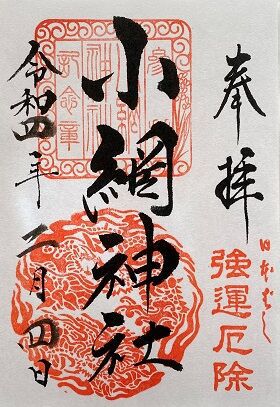 奉拝
日本ばし
強運厄除
小網神社
令和四年二月四日